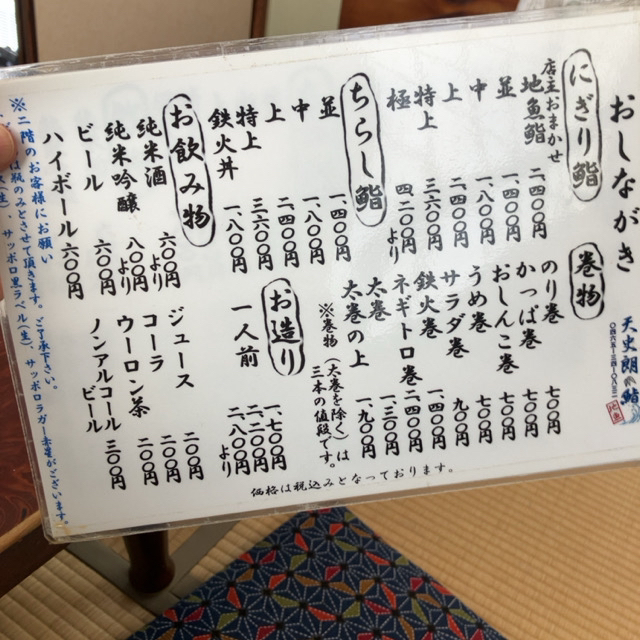 おしながき
天史朗鮨
にぎり鮨
店主おまかせ
地魚鮨 二、四〇〇円
並 一、四〇〇円
中 一、八〇〇円
上 二、四〇〇円
特上 三、六〇〇円
極 四、二〇〇円より
ちらし鮨
並 一、四〇〇円
中 一、八〇〇円
上 二、四〇〇円
特上 三、六〇〇円
鉄火丼 一、八〇〇円
お飲み物
純米酒 六〇〇円より
純米吟醸 八〇〇円より
ビール 六〇〇円
ハイボール 六〇〇円
巻物
のり巻 七〇〇円
かっぱ巻 七〇〇円
おしんこ巻 七〇〇円
うめ巻 七〇〇円
サラダ巻 九〇〇円
鉄火巻 一、四〇〇円
ネギトロ巻 一、四〇〇円
太巻 一、三〇〇円
太巻の上 一、九〇〇円
※巻物(太巻を除く)は
三本の値段です。
お造り
一人前 一、七〇〇円
二、八〇〇円より
ジュース 二〇〇円
コーラ 二〇〇円
ウーロン茶 二〇〇円
ノンアルコール
ビール 三〇〇円
価格は税込みとなっております。
※二階のお客様にお願い
瓶のみとさせて頂きます。ご了承下さい。
サッポロ黒ラベル(生)、サッポロラガー赤星がございます。